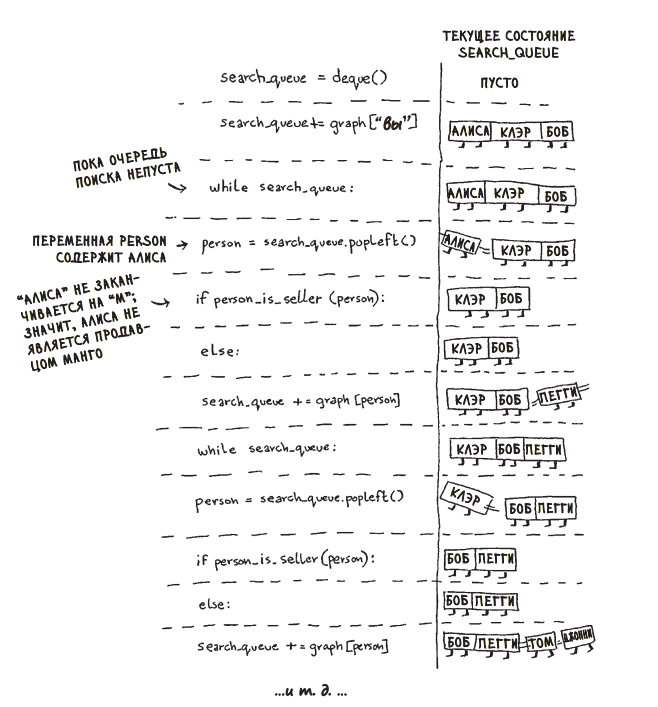 ТЕКУЩЕЕ СОСТОЯНИЕ
SEARCH_QUEUE
search_queue = deque()
ПУСТО
search_queue += graph["вы"]
АЛИСА КЛЭР БОБ
ПОКА ОЧЕРЕДЬ
ПОИСКА НЕПУСТА
while search_queue:
АЛИСА КЛЭР БОБ
ПЕРЕМЕННАЯ PERSON
СОДЕРЖИТ АЛИСА
person = search_queue.popleft()
АЛИСА КЛЭР БОБ
"АЛИСА" НЕ ЗАКАН-
ЧИВАЕТСЯ НА "М";
ЗНАЧИТ, АЛИСА НЕ
ЯВЛЯЕТСЯ ПРОДАВ-
ЦОМ МАНГО
if person_is_seller (person):
КЛЭР БОБ
else:
КЛЭР БОБ
search_queue += graph [person]
КЛЭР БОБ ПЕГГИ
while search_queue:
КЛЭР БОБ ПЕГГИ
person = search_queue.popleft()
КЛЭР БОБ ПЕГГИ
if person_is_seller (person):
БОБ ПЕГГИ
else:
БОБ ПЕГГИ
search_queue += graph [person]
БОБ ПЕГГИ ТОМ ДЖОННИ
...и т. д. ...